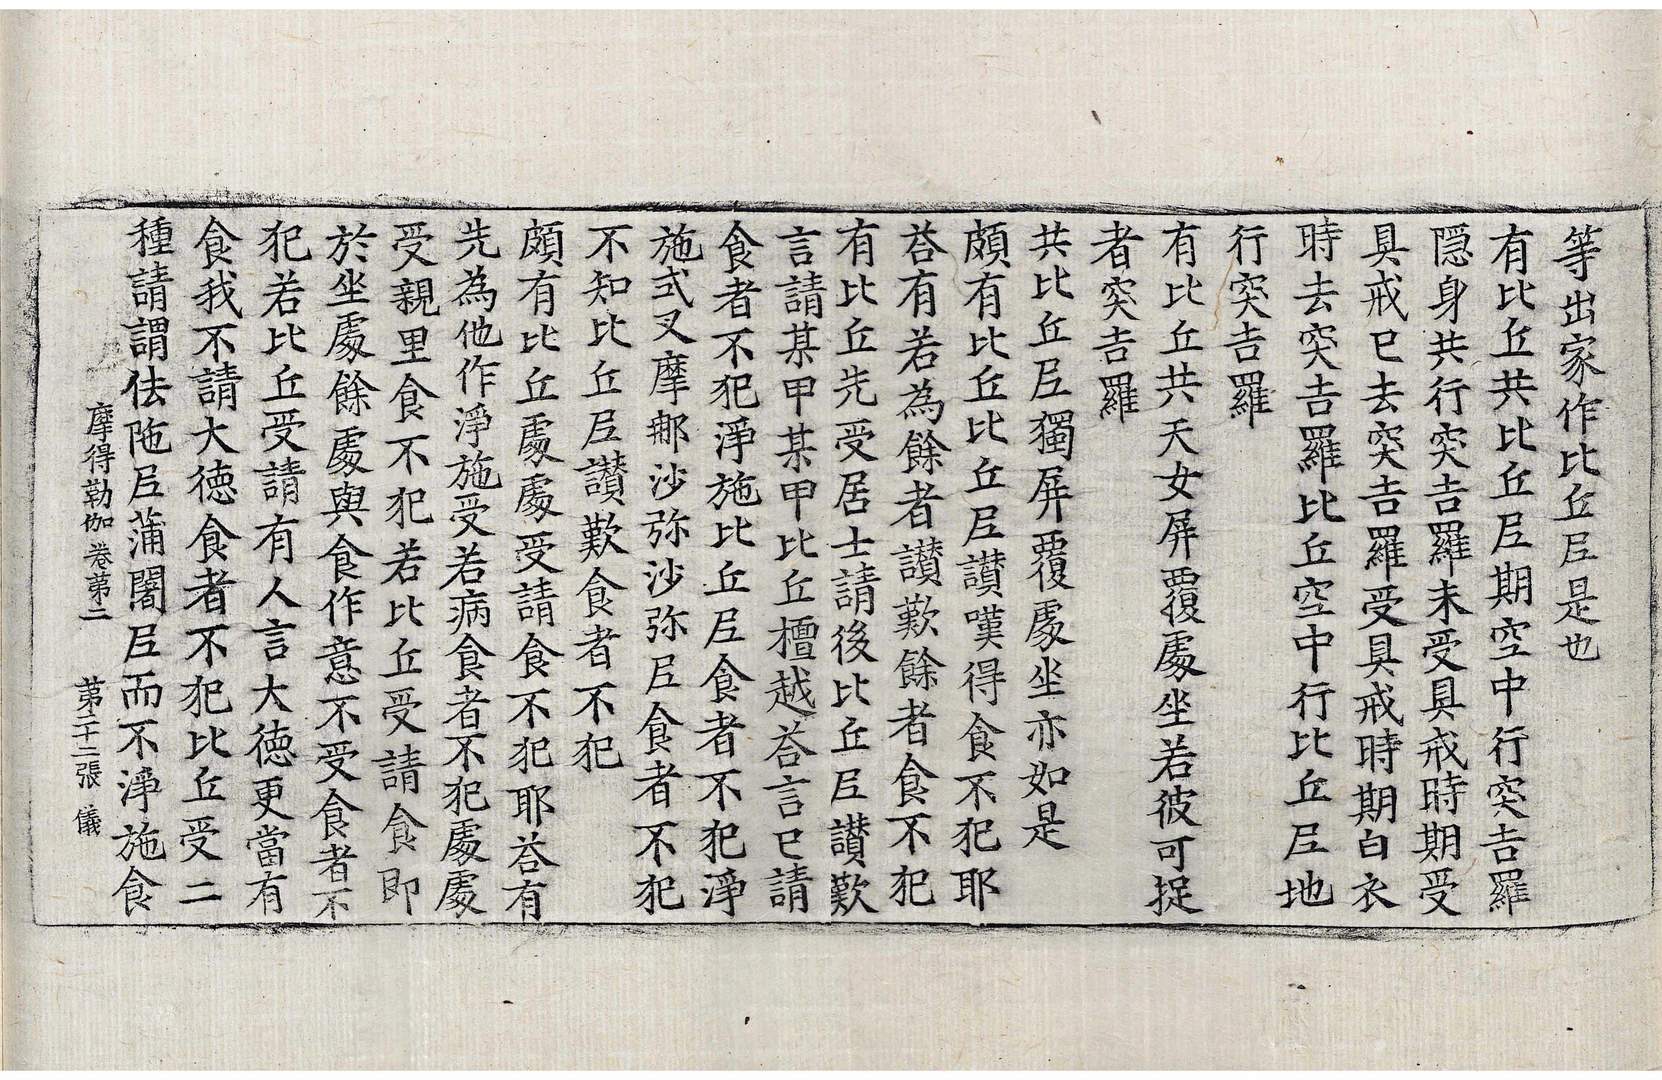 等出家作比丘𡰱是也
有比丘共比丘𡰱期空中行突吉羅
隱身共行突吉羅未受具戒時期受
具戒已去突吉羅受具戒時期白衣
時去突吉羅比丘空中行比丘𡰱地
行突吉羅
有比丘共天女屏覆處坐若彼可捉
者突吉羅
共比丘𡰱獨屏覆處坐亦如是
頗有比丘比丘𡰱讃嘆得食不犯耶
荅有若為餘者讃歎餘者食不犯
有比丘先受居士請後比丘𡰱讃歎
言請某甲某甲比丘檀越荅言已請
食者不犯淨施比丘𡰱食者不犯淨
施式叉摩那沙弥沙弥𡰱食者不犯
不知比丘𡰱讃歎食者不犯
頗有比丘處處受請食不犯耶荅有
先為他作淨施受若病食者不犯處處
受親里食不犯若比丘受請食即
於坐處餘處與食作意不受食者不
犯若比丘受請有人言大德更當有
食我不請大德食者不犯比丘受二
種請謂佉陁𡰱蒲闍𡰱而不淨施食
摩得勒伽卷第二　第二十二張　儀